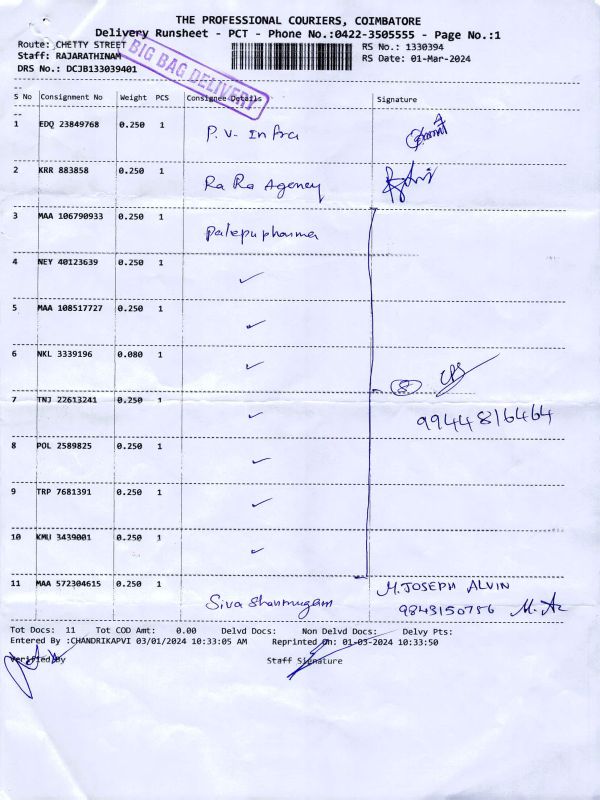 THE PROFESSIONAL COURIERS, COIMBATORE
Delivery Runsheet - PCT - Phone No.:0422-3505555 - Page No.:1
Route: CHETTY STREET
RS No.: 1330394
Staff: RAJARATHINAM
RS Date: 01-Mar-2024
DRS No.: DCJB133039401
BIG BAG DELIVERY
S No Consignment No Weight PCS Consignee Details Signature
1 EDQ 23849768 0.250 1 P.V. Infra
2 KRR 883858 0.250 1 Ra Ra Agency
3 MAA 106790933 0.250 1 Palepu pharma
4 NEY 40123639 0.250 1 ✓
5 MAA 108517727 0.250 1 ✓
6 NKL 3339196 0.080 1 ✓
8
7 TNJ 22613241 0.250 1 ✓ 9944816464
8 POL 2589825 0.250 1 ✓
9 TRP 7681391 0.250 1 ✓
10 KMU 3439001 0.250 1 ✓
11 MAA 572304615 0.250 1 Siva Shanmugam M. JOSEPH ALVIN
9843150756
Tot Docs: 11 Tot COD Amt: 0.00 Delvd Docs: Non Delvd Docs: Delvy Pts:
Entered By :CHANDRIKAPVI 03/01/2024 10:33:05 AM Reprinted On: 01-03-2024 10:33:50
Verified By Staff Signature